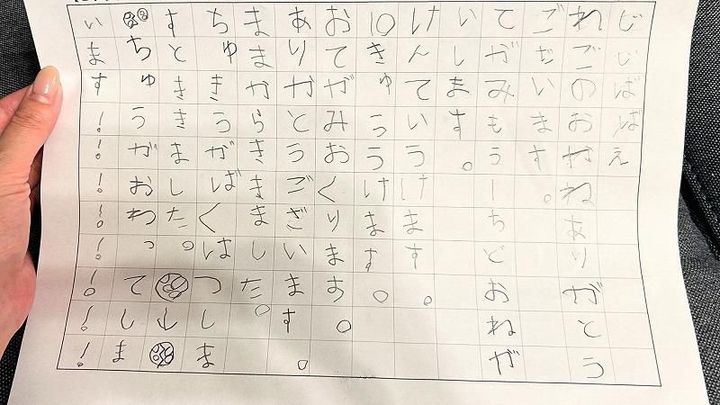 じじばばえ
れごのおかねありがとう
ございます。
てがみもうーちどおねが
いします。
けんていうけます。
10きゅううけます。
おてがみおくります。
ありがとうございます。
ままからきまました。
ちゅきうがばくはつしま
すとききました。
ちゅうがおわってしま
います!!!!!!!!